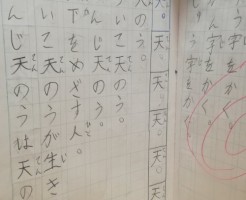 しゅう字をか
字をかく。
天天天天天
天のう。
いこ天のう。
んじ天のう。
下をめざす人。
いこ天のうが生き
んじ天のうは天の